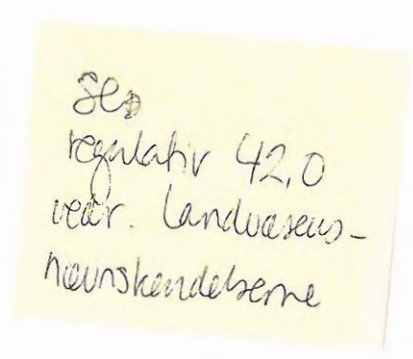 Se
regulativ 42.0
vedr. Landvæsens-
nævnskendelserne